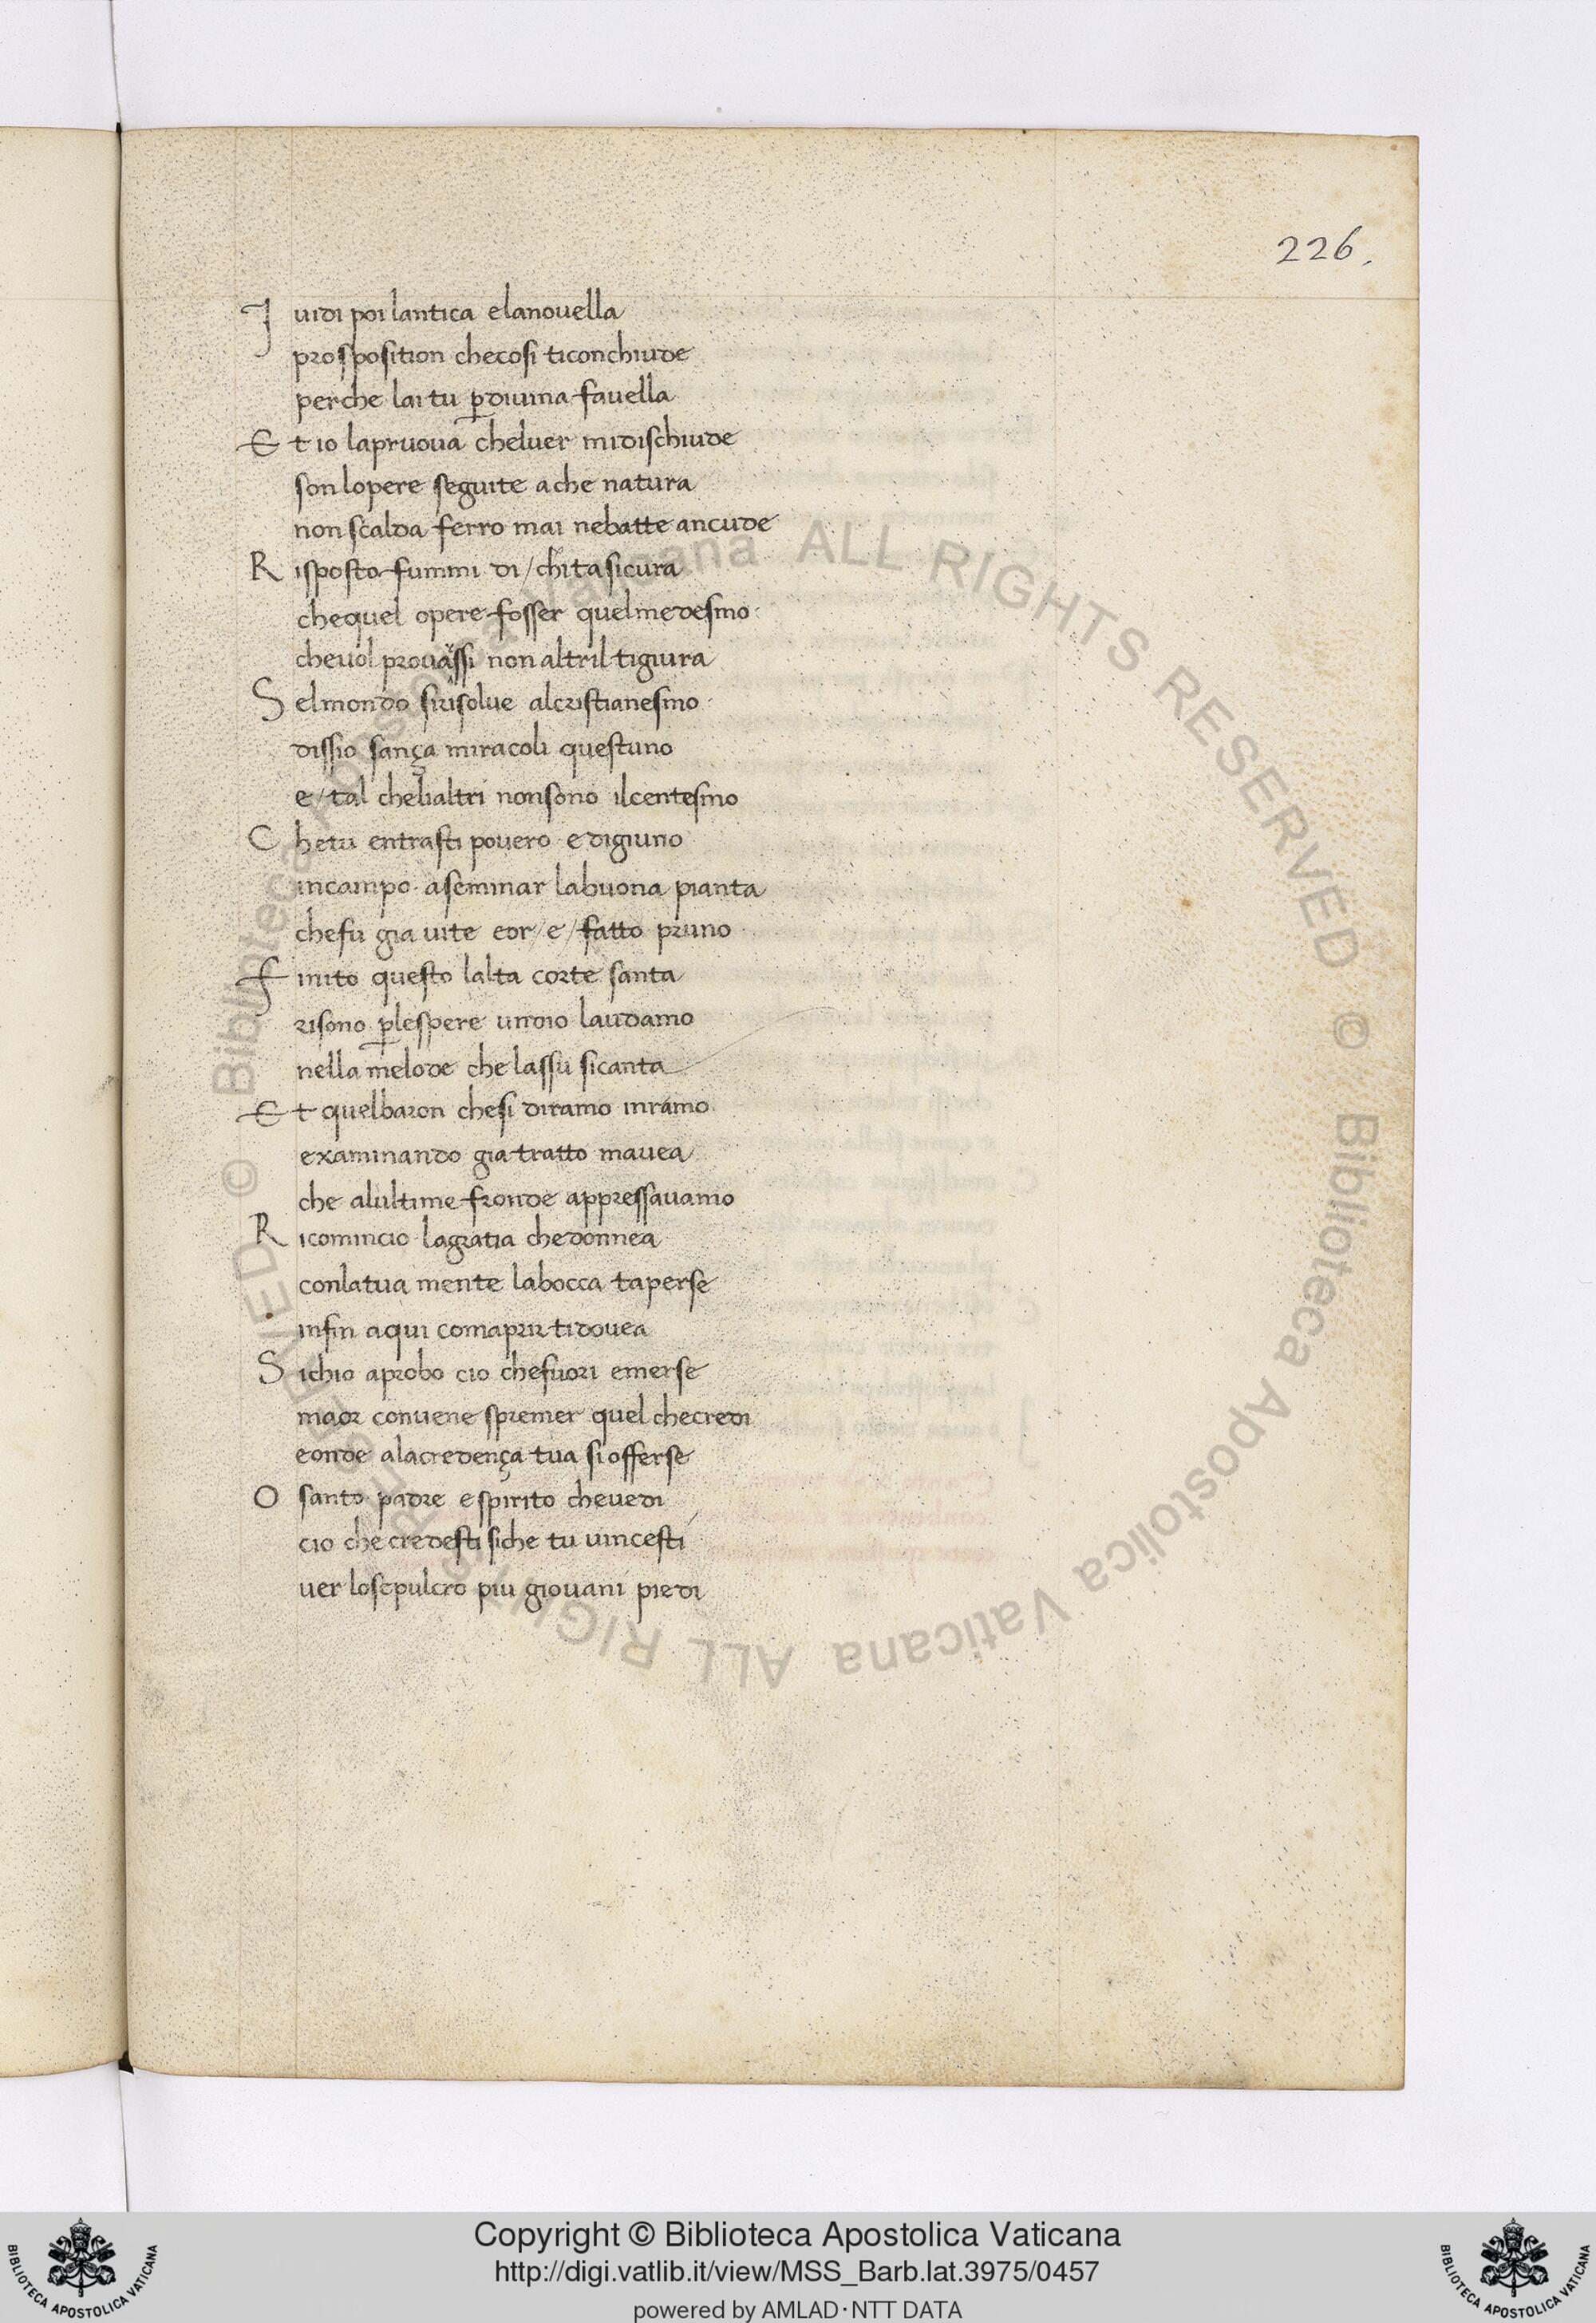 226.
J uidi poi lantica elanouella
prosposition checosi ticonchiude
perche lai tu p̱diuina fauella
E t io lapruoua cheluer midischiude
son lopere seguite ache natura
non scalda ferro mai nebatte ancude
R isposto fummi di/chi tasicura
chequel opere fosser quelmedesmo
cheuol prouassi non altril tigiura
S elmondo sirisolue alcristianesmo
dissio sança miracoli questuno
e/tal chelialtri nonsono ilcentesmo
C hetu entrasti pouero e digiuno
incampo aseminar labuona pianta
chefu gia uite eor/e/fatto pruno
f inito questo lalta corte santa
risono p̱lesspere undio laudamo
nella melode che lassu sicanta
E t quelbaron chesi diramo inramo
examinando gia tratto mauea
che alultime fronde appressauamo
R icomincio lagratia chedonnea
conlatua mente labocca taperse
infin aqui comaprir tidouea
S ichio aprobo cio chefuori emerse
maor conuene spremer quel checredi
eonde alacredença tua si offerse
O santo padre e spirito cheuedi
cio che credesti siche tu uincesti
uer losepulcro piu giouani piedi
© Biblioteca Apostolica Vaticana ALL RIGHTS RESERVED © Biblioteca Apostolica Vaticana ALL RIGHTS RESERVED
Copyright © Biblioteca Apostolica Vaticana
http://digi.vatlib.it/view/MSS_Barb.lat.3975/0457
powered by AMLAD·NTT DATA
BIBLIOTECA APOSTOLICA VATICANA
BIBLIOTECA APOSTOLICA VATICANA